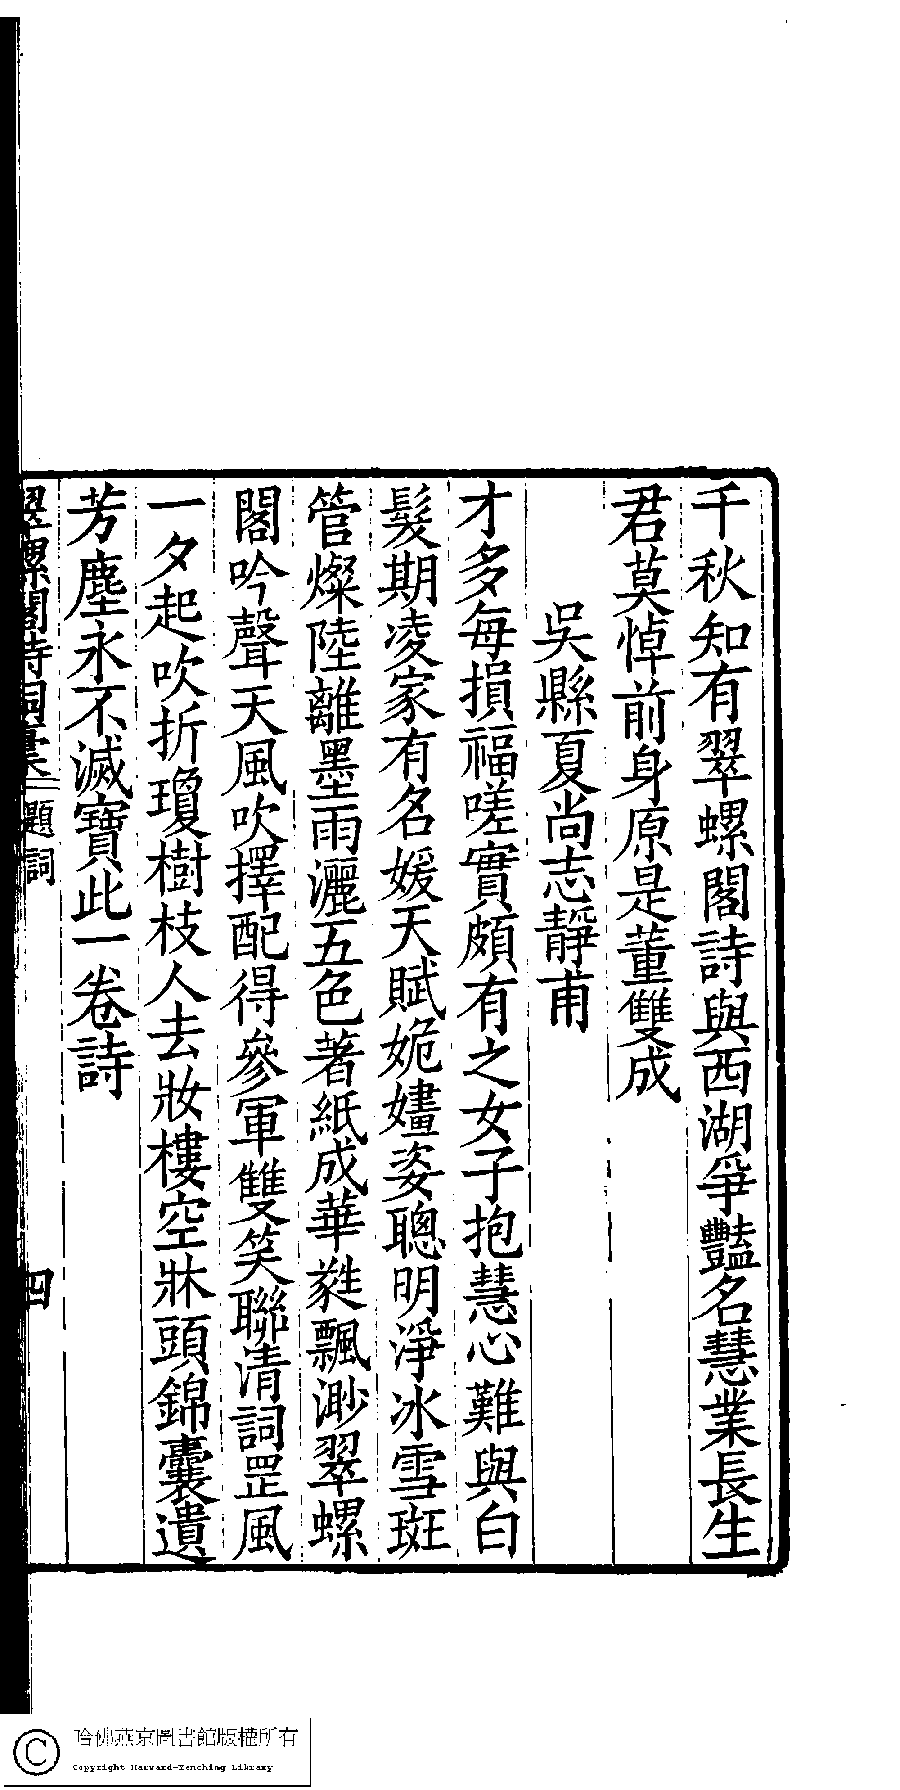 千秋知有翠螺閣詩與西湖爭豔名慧業長生
君莫悼前身原是董雙成
吳縣夏尚志靜甫
才多每損福嗟實頗有之女子抱慧心難與白
髮期凌家有名媛天賦姽嫿姿聰明淨冰雪斑
管燦陸離墨雨灑五色著紙成華蕤飄渺翠螺
閣吟聲天風吹擇配得參軍雙笑聯清詞罡風
一夕起吹折瓊樹枝人去妝樓空牀頭錦囊遺
芳塵永不滅寶此一卷詩
翠螺閣詩詞稾 題詞 四
哈佛燕京圖書館版權所有
Copyright Harvard-Yenching Library